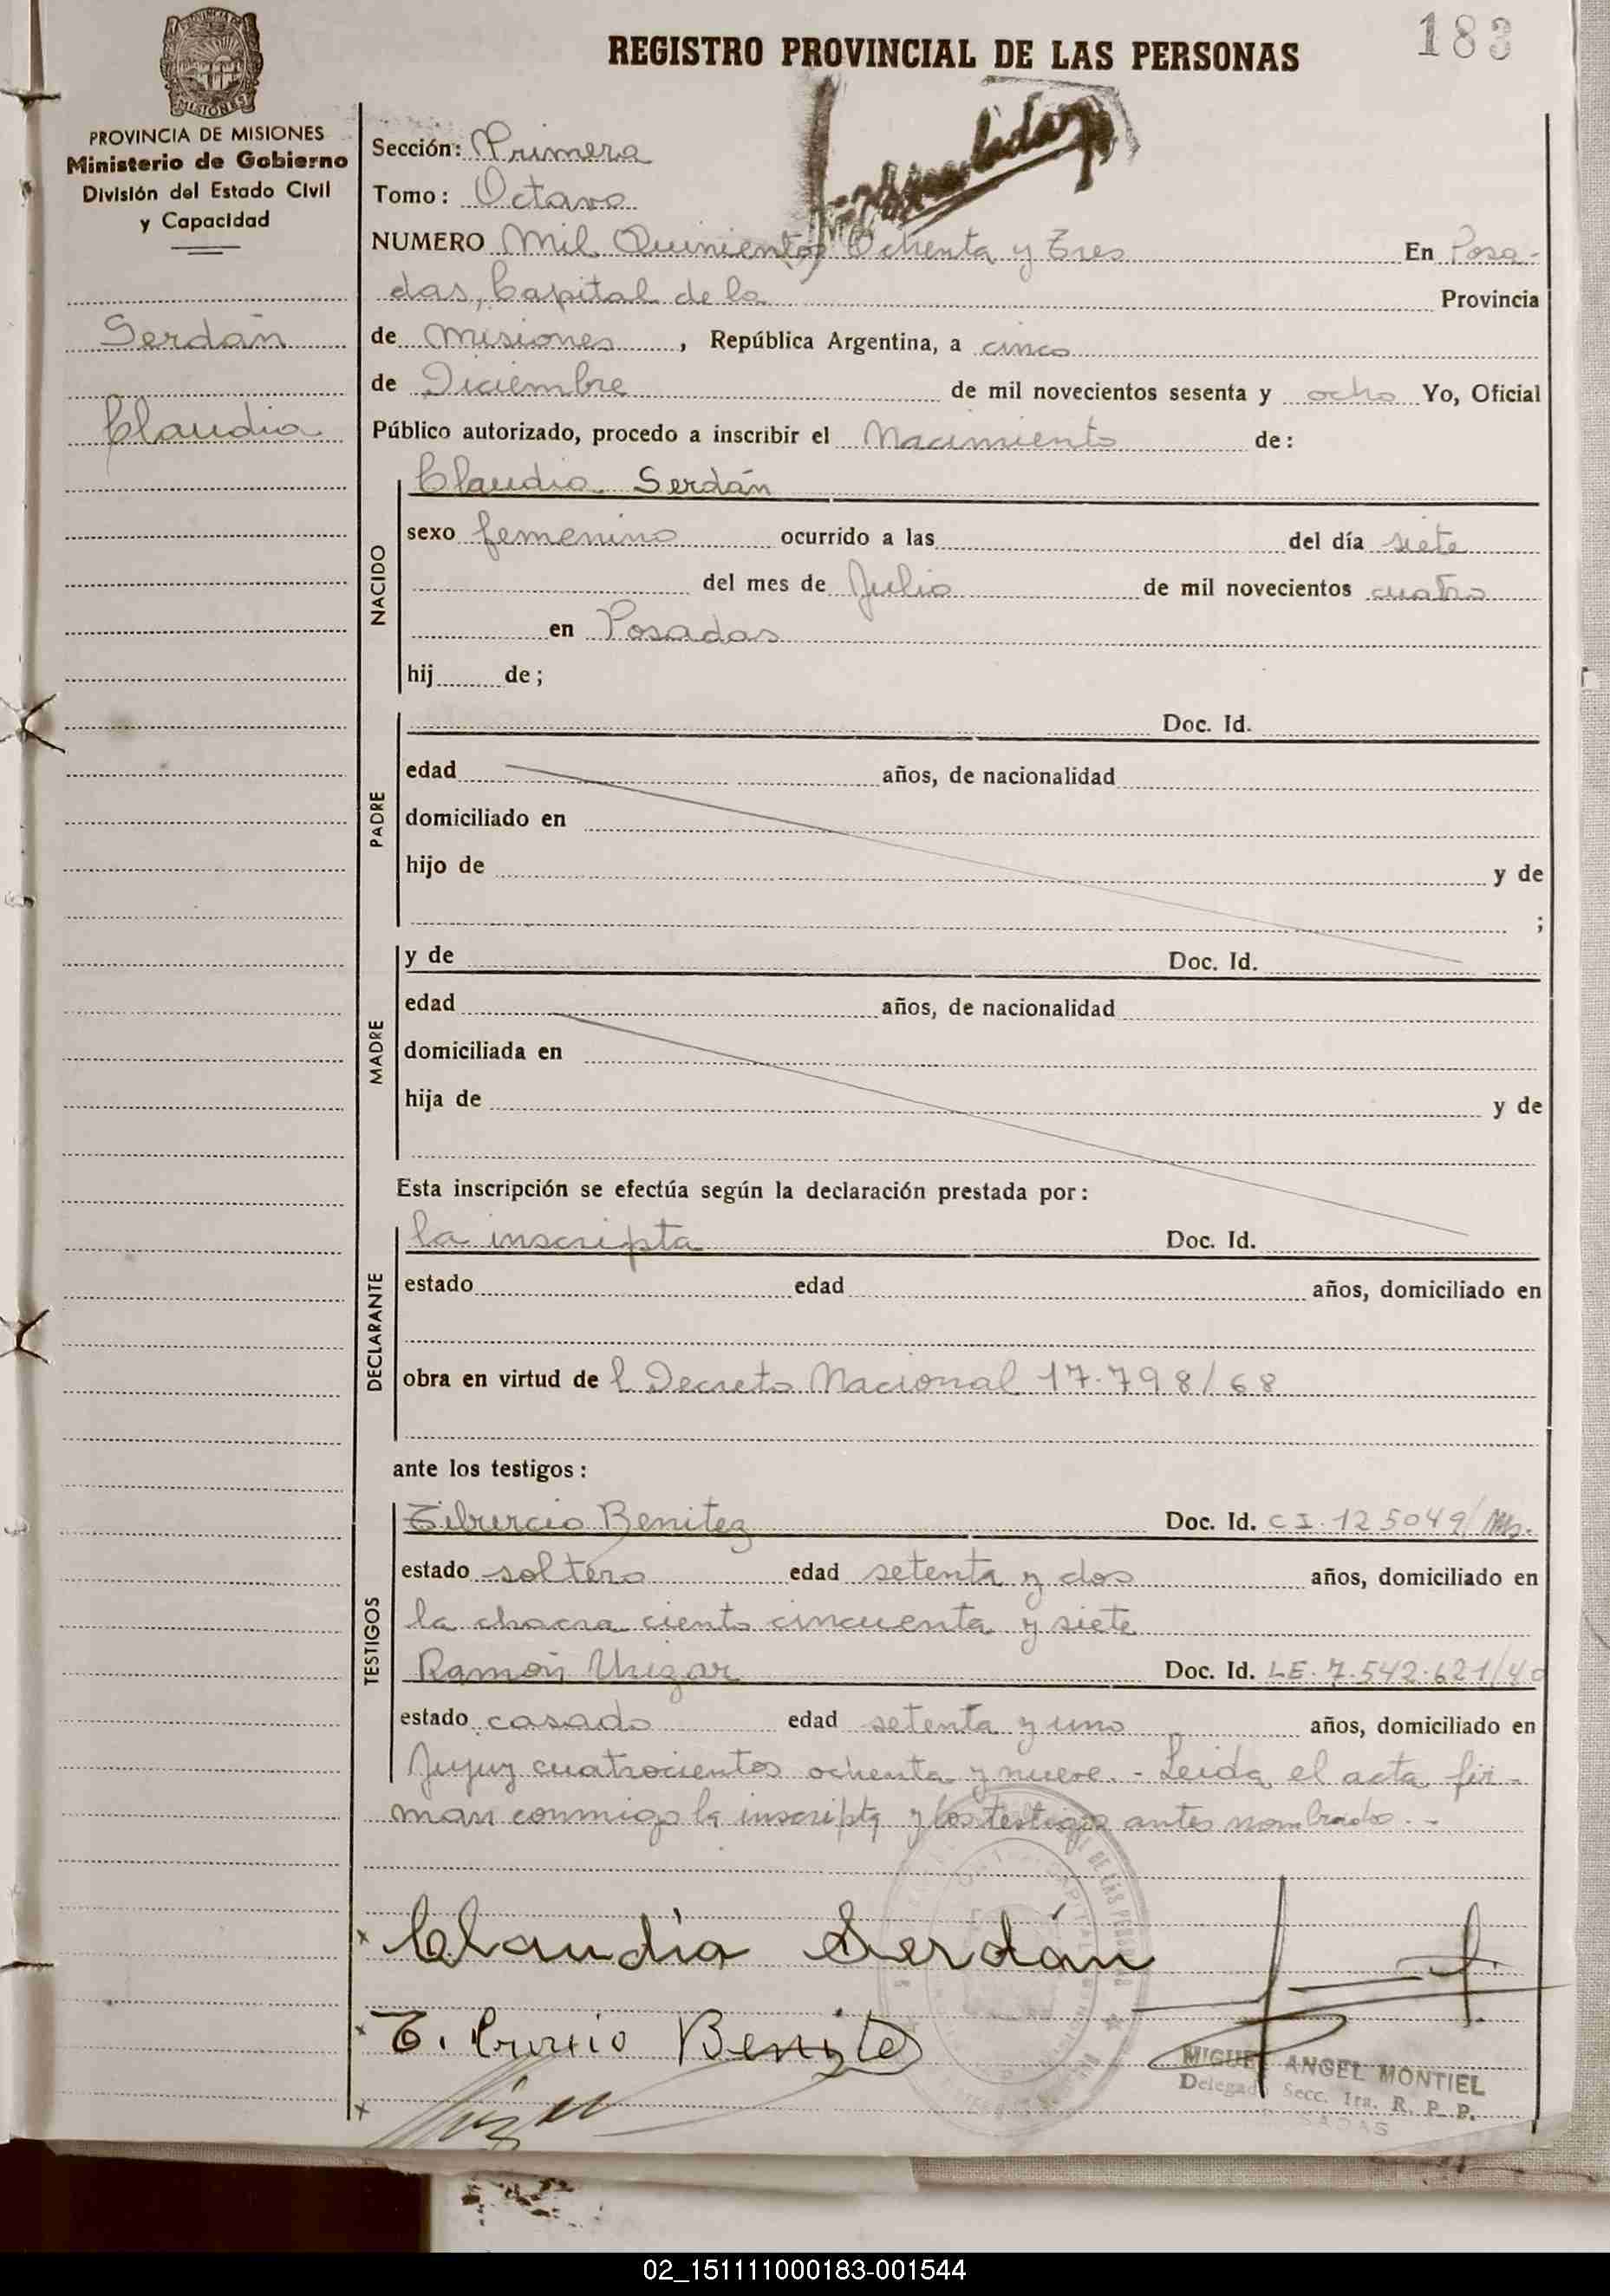 183
REGISTRO PROVINCIAL DE LAS PERSONAS
MISIONES
PROVINCIA DE MISIONES
Ministerio de Gobierno
División del Estado Civil
y Capacidad
Serdán
Claudia
Sección: Primera
Tomo: Octavo
NUMERO Mil Quinientos Ochenta y Tres En Posa-
das, Capital de la Provincia
de Misiones, República Argentina, a cinco
de Diciembre de mil novecientos sesenta y ocho Yo, Oficial
Público autorizado, procedo a inscribir el Nacimiento de:
NACIDO
Claudia Serdán
sexo femenino ocurrido a las del día siete
del mes de Julio de mil novecientos cuatro
en Posadas
hij de;
PADRE
Doc. Id.
edad años, de nacionalidad
domiciliado en
hijo de y de
;
MADRE
y de Doc. Id.
edad años, de nacionalidad
domiciliada en
hija de y de
Esta inscripción se efectúa según la declaración prestada por:
DECLARANTE
la inscripta Doc. Id.
estado edad años, domiciliado en
obra en virtud de l Decreto Nacional 17.798/68
ante los testigos:
TESTIGOS
Tiburcio Benitez Doc. Id. C I. 125049/
estado soltero edad setenta y dos años, domiciliado en
la chacra ciento cincuenta y siete
Ramón Doc. Id. LE. 7.542.621/40
estado casado edad setenta y uno años, domiciliado en
Jujuy cuatrocientos ochenta y nueve.- Leida el acta fir-
man conmigo la inscripta y los testigos antes nombrado.-
Claudia Serdán
Benitez
MIGUEL ANGEL MONTIEL
Delegado Secc. 1ra. R. P. P.
02_151111000183-001544